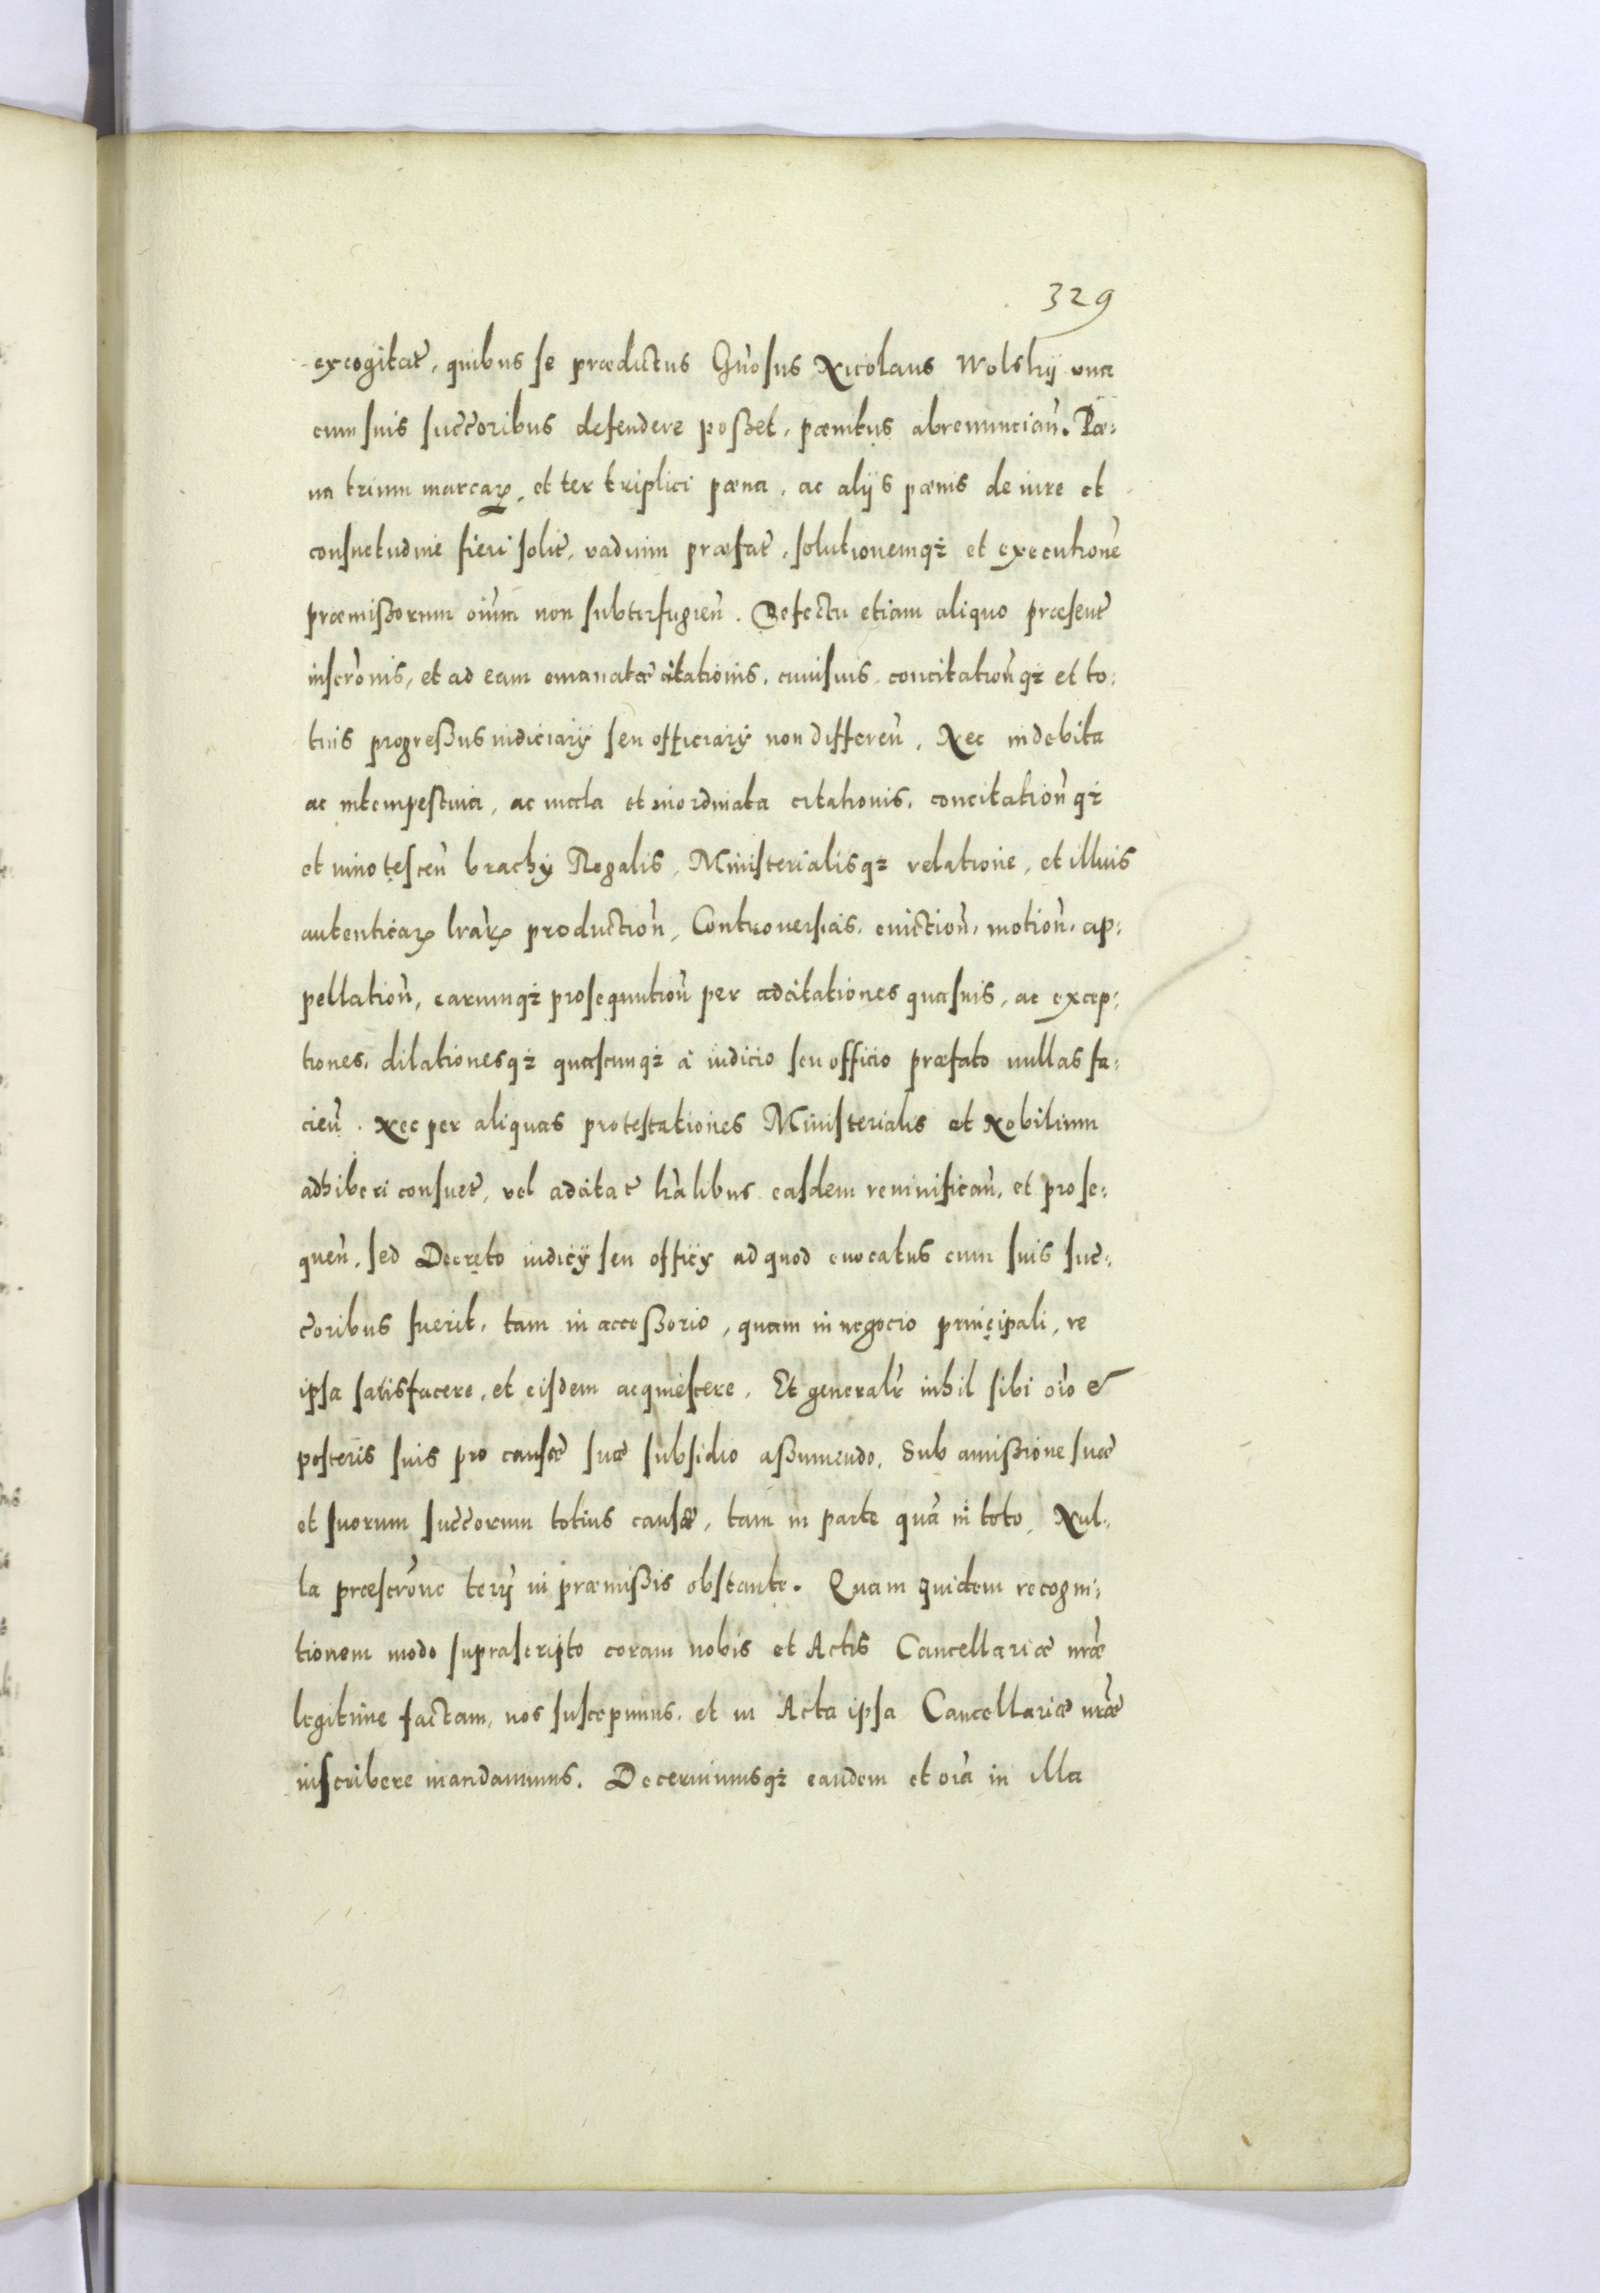 329
excogitat̃, quibus se prædictus Gñosus Nicolaus Wolskij una
cum suis succ̃oribus defendere posset, pænitus abrenuncian̄. Pœ-
na trium marcaꝝ, et ter triplici pœna, ac alijs pœnis de iure et
consuetudine fieri solit̃, vadium præfat̃, solutionemq₃ et executionẽ
præmissorum oĩum non subterfugien̄. Defectu etiam aliquo præsent̃
inscr̃onis, et ad eam emanatæ citationis, cuiusuis concitation̄q₃ et to-
tius progressus iudiciarij seu officiarij non differen̄. Nec indebita
ac intempestiua, ac mala et inordinata citationis, concitation̄q₃
et innotescen̄ brachij Regalis, Ministerialisq₃ relatione, et illius
autenticaꝝ lr̃aꝝ production̄, Controuersias, euiction̄, motion̄, ap-
pellation̄, earumq₃ prosequution̄ per adcitationes quasuis, ac excep-
tiones, dilationesq₃ quascunq₃ à iudicio seu officio præfato nullas fa-
cien̄. Nec per aliquas protestationes Ministerialis et Nobilium
adhiberi consuet̃, vel adcitat̃ lr̃alibus easdem reminifican̄, et prose-
quen̄, sed Decreto iudicij seu officij ad quod euocatus cum suis suc-
c̃oribus fuerit, tam in accessorio, quam in negocio principali, re
ipsa satisfacere, et eisdem acquiescere. Et generalr̃ nihil sibi oĩo &
posteris suis pro causæ suæ subsidio assumendo, Sub amissione suæ
et suorum succ̃orum totius causæ, tam in parte quã in toto, Nul-
la præscr̃one terr̃ in præmissis obstante. Quam quidem recogni-
tionem modo suprascripto coram nobis et Actis Cancellariæ nr̃æ
legitime factam, nos suscepimus, et in Acta ipsa Cancellariæ nr̃æ
inscribere mandauimus. Decernimusq₃ eandem et oĩa in illa